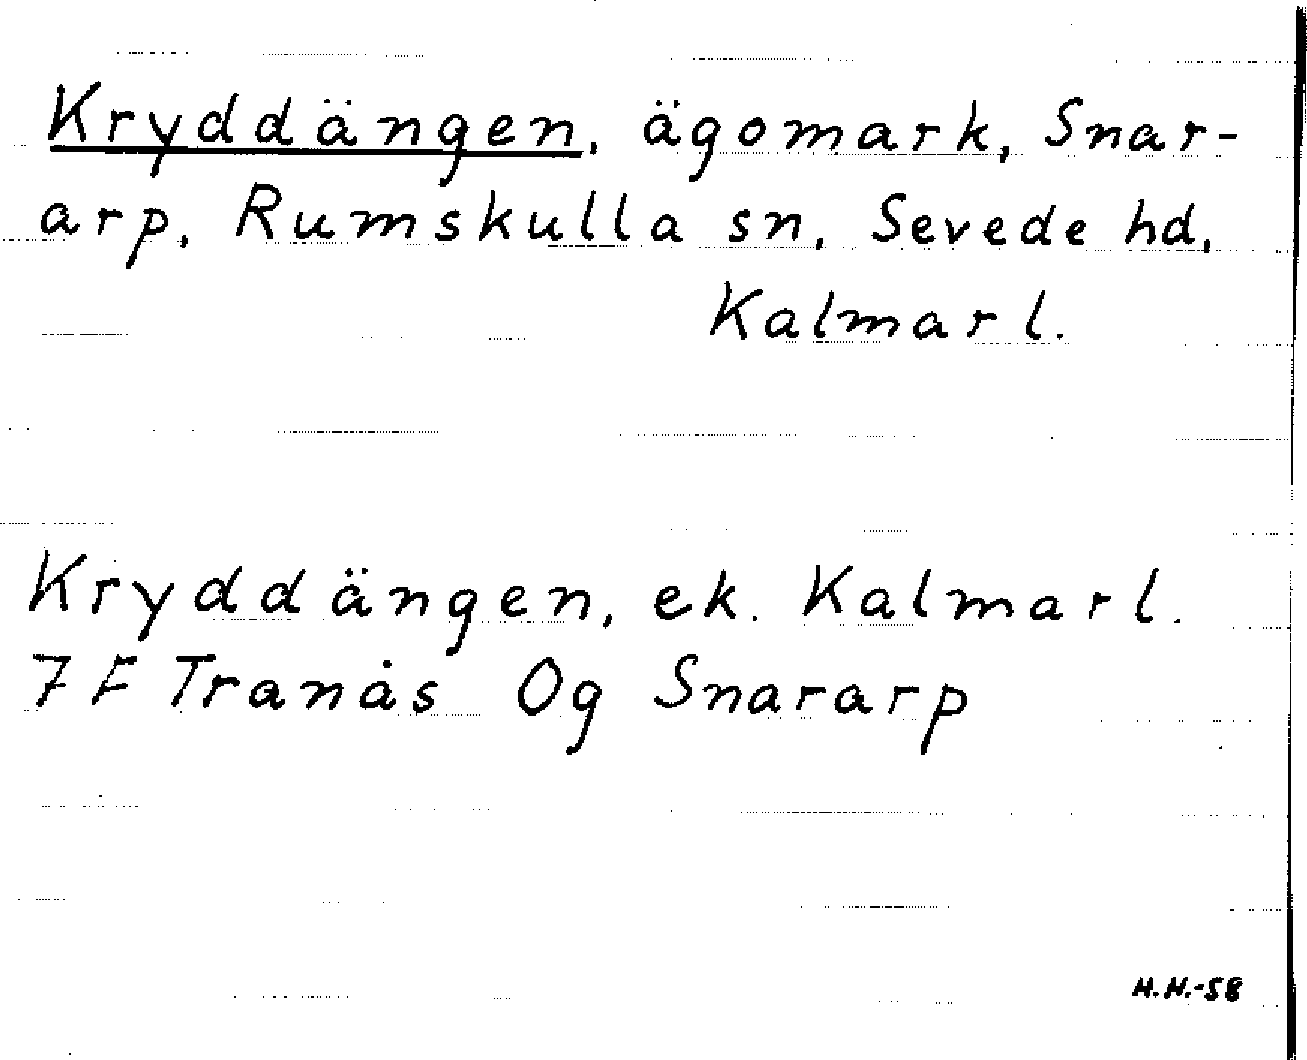 Kryddängen, ägomark, Snar-
arp, Rumskulla sn, Sevede hd,
Kalmarl.
Kryddängen, ek. Kalmarl.
7 F Tranås Og Snararp
H.H.-58